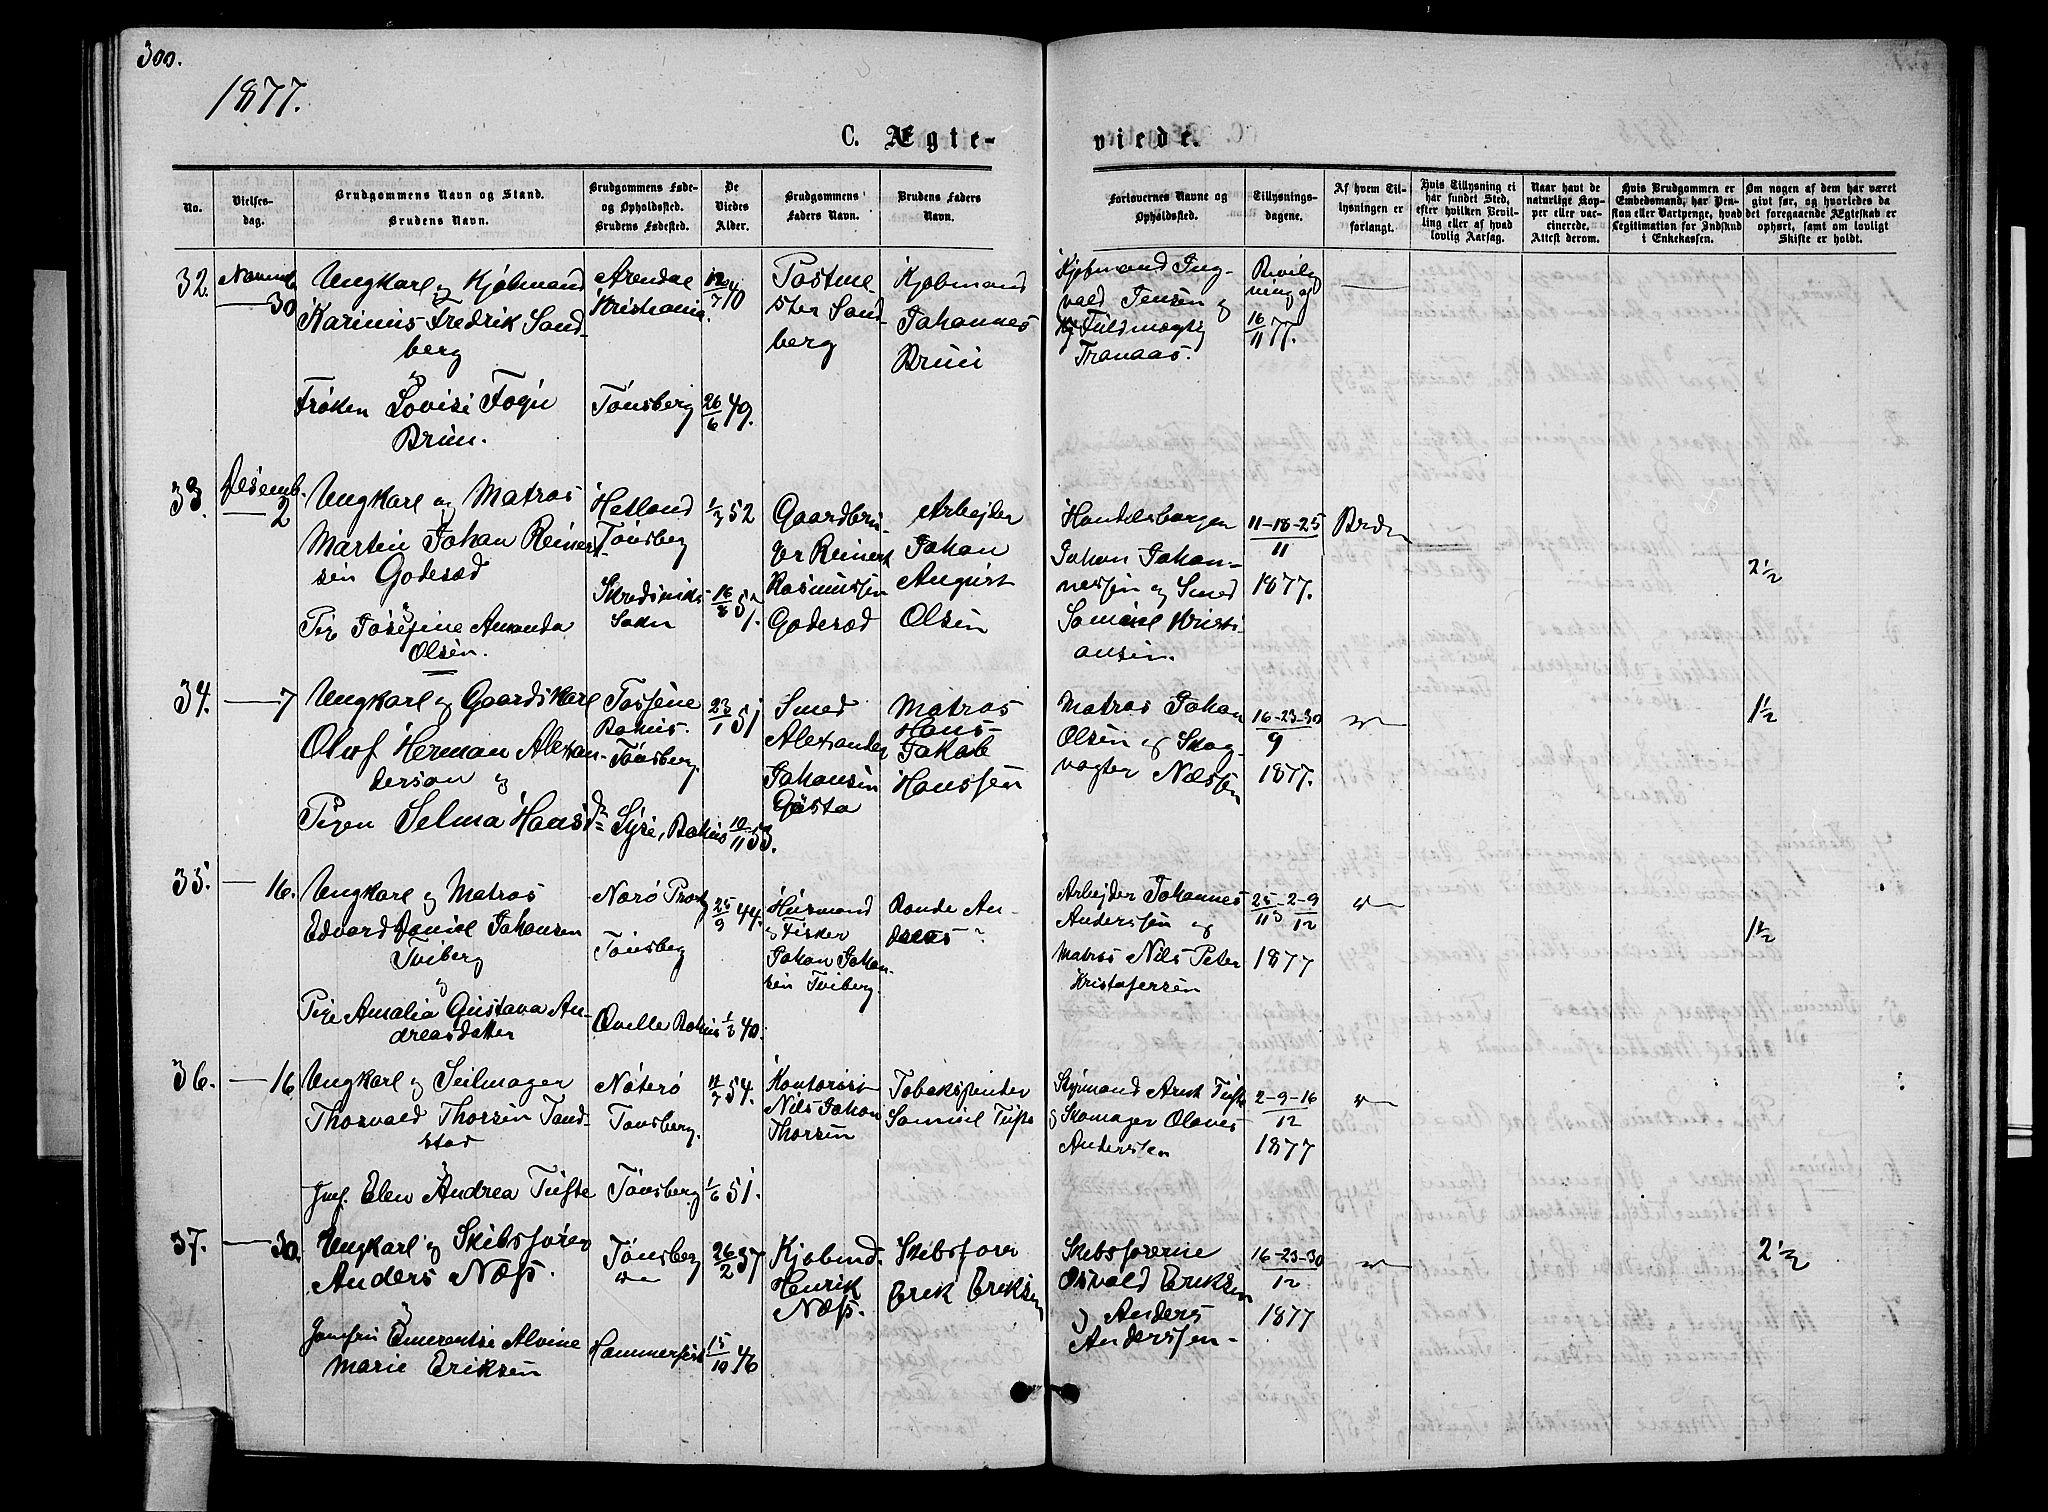 300.
1877.
C. Ægte-
viede.
No.
Vielses-
dag.
Brudgommens Navn og Stand.
Brudens Navn.
Brudgommens Føde-
og Opholdssted.
Brudens Fødested.
De
Viedes
Alder.
Brudgommens
Faders Navn.
Brudens Faders
Navn.
Forlovernes Navne og
Opholdssted.
Tillysnings-
dagene.
Af hvem Til-
lysningen er
forlangt.
Hvis Tillysning ei
har fundet Sted,
efter hvilken Bevil-
ling eller af hvad
lovlig Aarsag.
Naar havt de
naturlige Kop-
per eller vac-
cinerede.
Attest derom.
Hvis Brudgommen er
Embedsmand, har Pen-
sion eller Vartpenge, hvad
Legitimation for Indskud
i Enkekassen.
Om nogen af dem har været
givt før, og hvorledes da
det foregaaende Ægteskab er
ophørt, samt om lovligt
Skifte er holdt.
32.
Novemb
30
Ungkarl og Kjøbmand
Karinius Fredrik Sand
berg
og
Frøken Lovise Fogn
Brun.
Arendal
Kristiania.
Tønsberg
12/7 40
26/6 49.
Postme
ster Sand
berg
Kjøbmand
Johannes
Brun
Kjøbmand Ing-
vald Jensen og
Kj. Fuldmægtig
Tranaas.
Bevilg
ning af
16/11 77.
33.
Desemb.
2
Ungkarl og Matros
Martin Johan Reinert
sen Godesæd
og
Pige Josefine Amanda
Olsen.
Hetland
Tønsberg
Skredsviks
Sokn
1/3 52
16/8 51.
Gaardbru
ger Reinert
Rasmussen
Godesæd
Arbejder
Johan
August
Olsen
Handelsborger
Johan Johan-
nessen og Smed
Samuel Kristi-
ansen.
11-18-25
11
1877.
Brdn
2 1/2
34.
7
Ungkarl og Gaardskarl
Olof Herman Alexan
derson og
Pigen Selma Hansdr
Tossene
Bahus.
Tønsberg.
Syre, Bahus
23/1 51
10/11 53.
Smed
Alexander
Johansen
Gåsta
Matros
Hans
Jakob
Hanssen
Matros Johan
Olsen og Skog-
vogter Næssen
16-23-30
9
1877.
1 1/2
35.
16.
Ungkarl og Matros
Edvard Daniel Johansen
Tviberg
og
Pige Amalia Gustava An-
dreasdatter
Nærø Prostg
Tønsberg
Qville Bahus
25/9 44.
1/3 40.
Husmand
og Fisker
Johan Johan
sen Tviberg.
Bonde An-
dreas
Arbejder Johannes
Anderssen og
Matros Nils Peter
Kristofersen
25-2-9
11 12
1877
1 1/2
36.
16
Ungkarl og Seilmager
Thorvald Thorsen Tand-
stad
og
Jmf. Elen Andrea Tufte
Nøterø
Tønsberg.
Tønsberg
11/7 54.
1/6 51.
Kontorist
Nils Johan
Thorsen
Tobakspinder
Samuel Tufte
Styrmand Arnt Tufte
og Skomager Olaves
Anderssen
2-9-16
12
1877
37.
30.
Ungkarl og Skibsfører
Anders Næss.
og
Jomfru Emerentse Alvine
Marie Eriksen
Tønsberg
Hammerfest
26/2 37
15/10 46
Kjøbmd.
Henrik
Næss.
Skibsfører
Erik Eriksen
Skibsførerne
Osvald Eriksen
og Anders
Anderssen-
16-23-30
12
1877
2 1/2